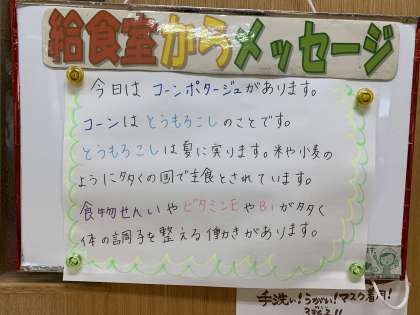 給食室からメッセージ
今日は コーンポタージュがあります。
コーンは とうもろこし のことです。
とうもろこし は 夏に 実ります。米や小麦の
ように多くの国で主食とされています。
食物せんいや ビタミンE や B1 が多く
体の調子を整える働きがあります。
手洗い!うがい!マスク着用!